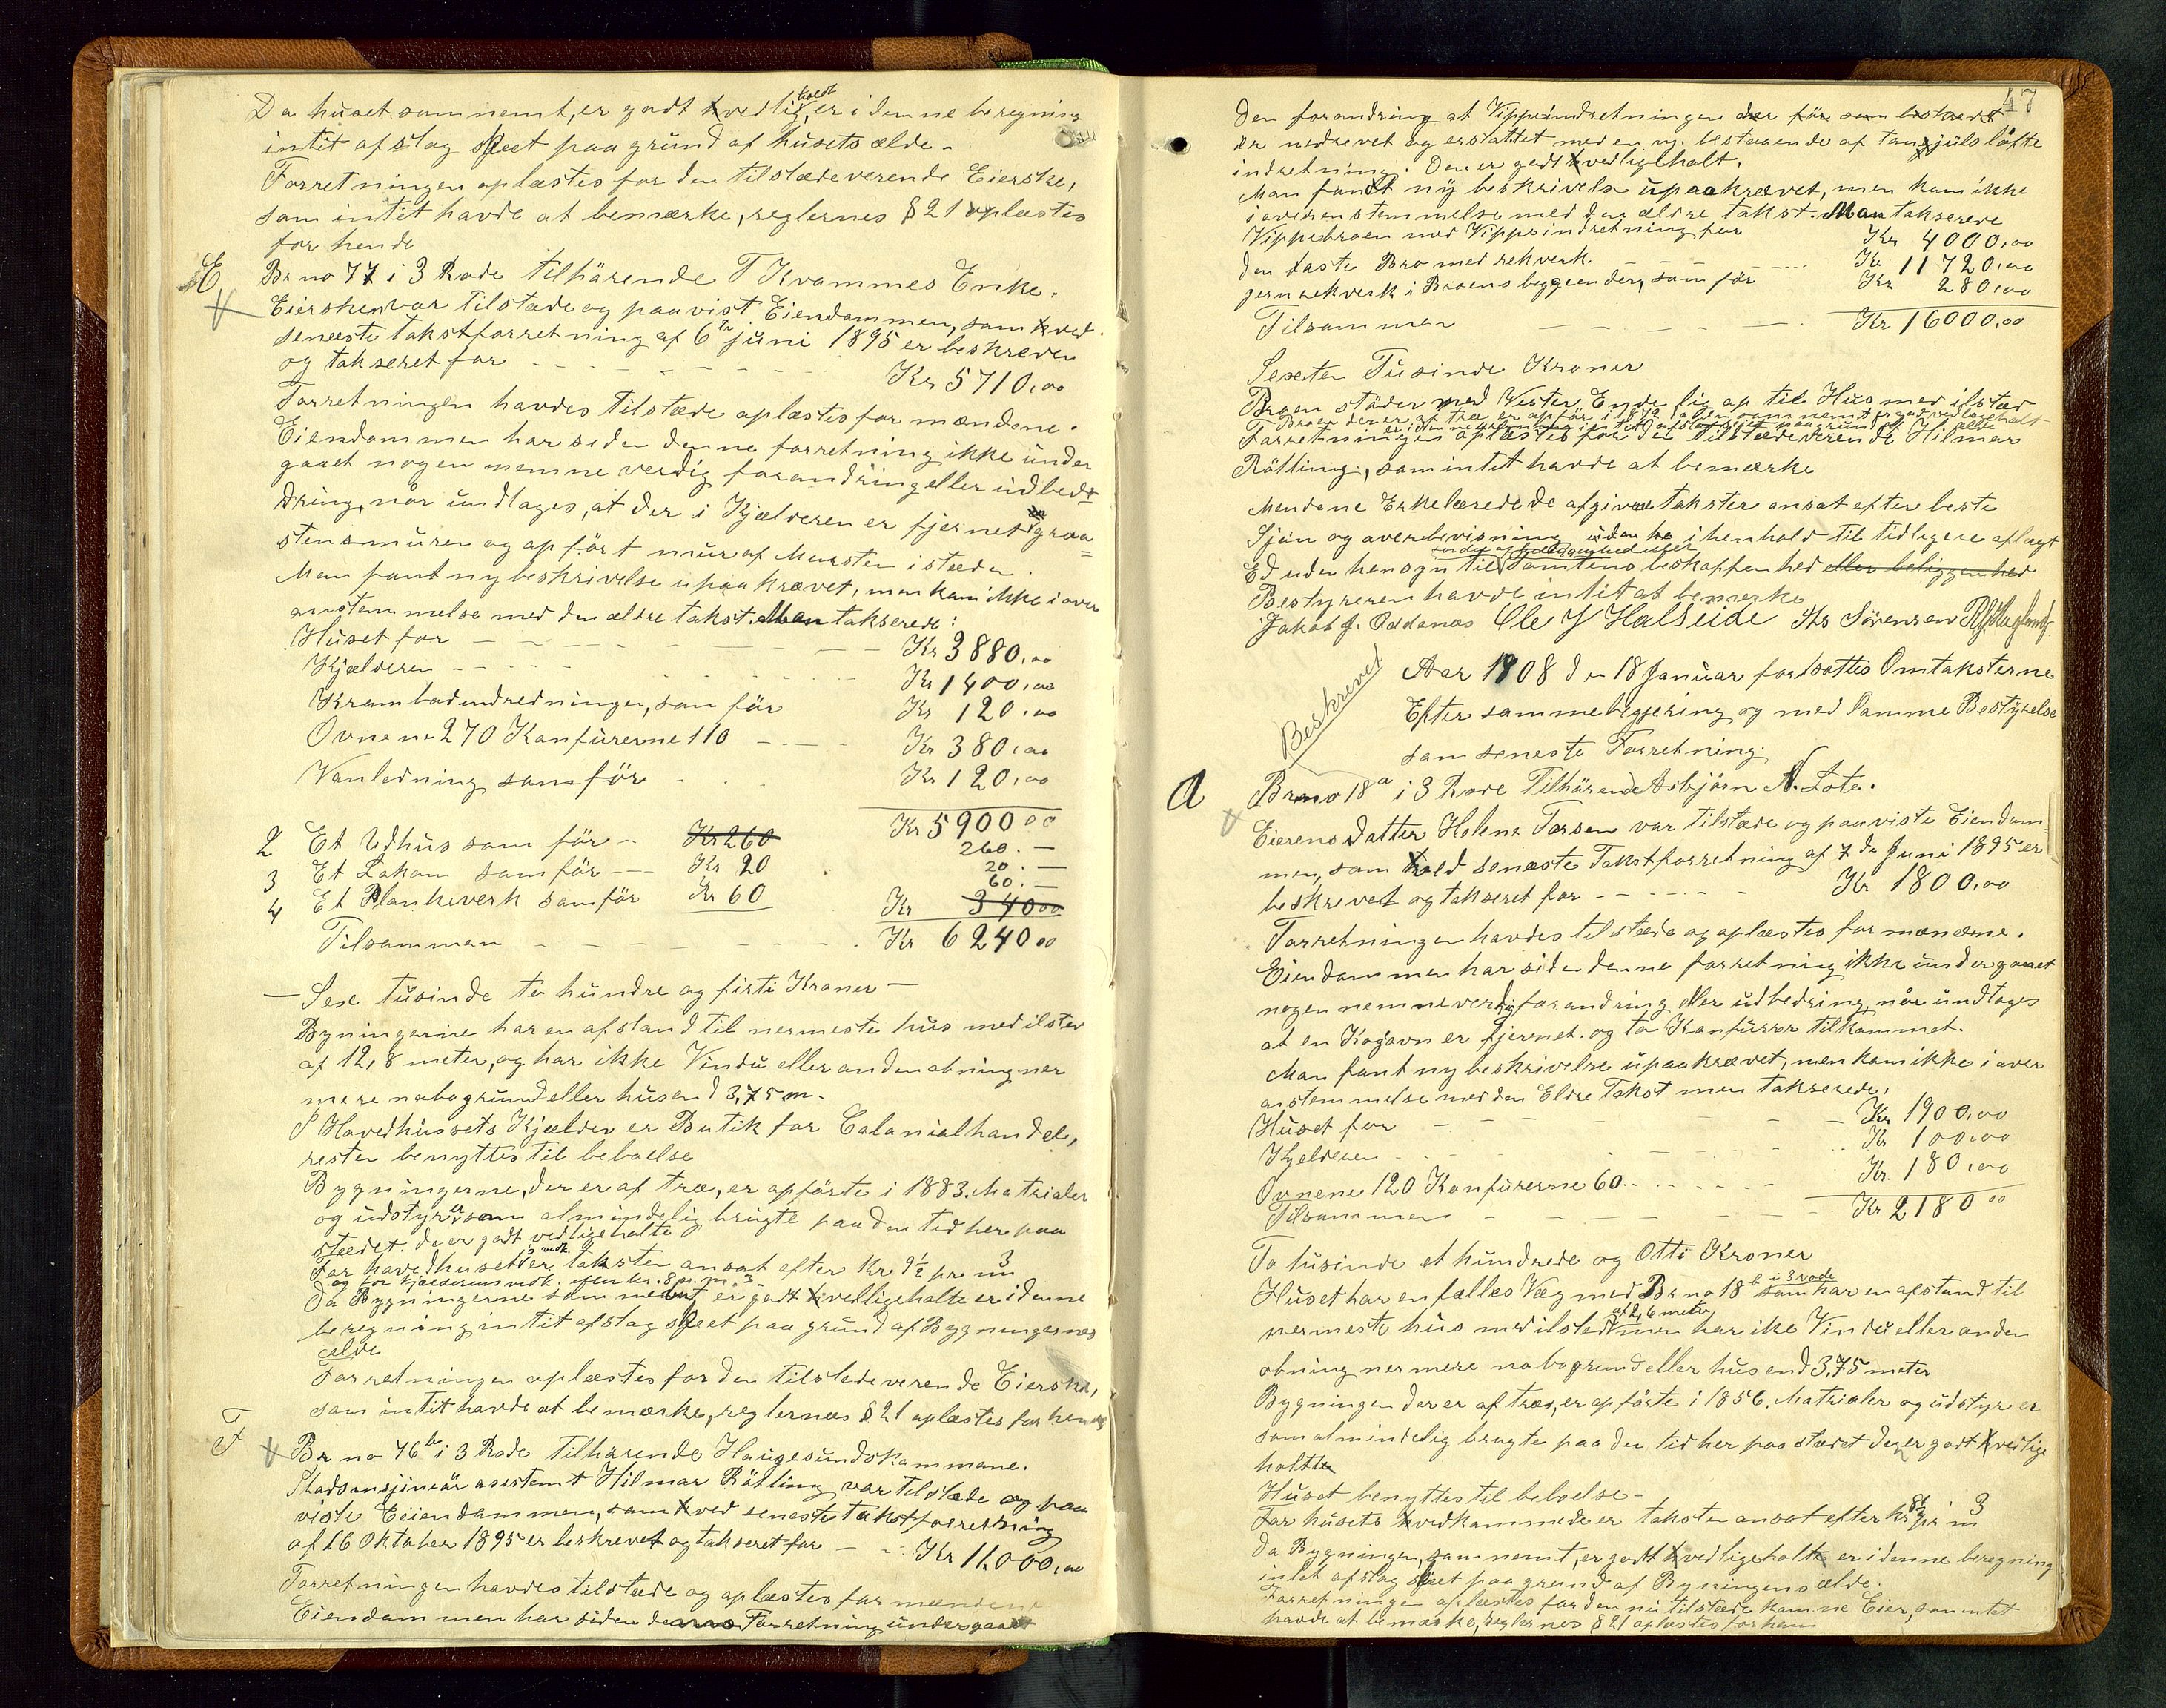 Da huset som nemt, er godt vedlig holdt er i denne beregning
intit afslag skeet paa grund af husets ælde -
Forretningen oplæstes for den tilstædeverende Eierske,
som intit havde at bemærke, reglernes § 21 oplæstes
for hende
E Br no 77 i 3 Rode tilhärende T Kvammes Enke.
Eiersken var tilstæde og paavist Eiendammen, som ved
seneste takstforretning af 6te juni 1895 er beskreven
og takseret for - - - - - - Kr 5710,00
Forretningen havdes tilstæde oplæstes for mændene.
Eiendommen har siden denne forretning ikke under
gaaet nogen nemneverdig forandring eller udbed-
dring, når undtages, at der i Kjælderen er fjernet graa
stensmuren og opfört mur af Mursten istæden.
Man fant ny beskrivelse upaakrævet, men kom ikke i over
enstemmelse med den ældre takst. Man takserede:
Huset for - - - - - Kr 3880,00
Kjælderen - - - - Kr 1400,00
Krambodindredningen, som för Kr 120,00
Ovnene 270 Konfurerne 110 - - - Kr 380,00
Vanledning som för - . . Kr 120,00
Kr 5900 00
2 Et Udhus som för - Kr 260 260. -
3 Et Lokom som för - - Kr 20 20. -
4 Et Plankeverk som för Kr 60 60. -
Kr 340 00
Tilsammen - - - - - - Kr 6240 00
- Sex tusinde to hundre og firti Kroner -
Bygningerne har en afstand til nermeste hus med ilsted
af 12,8 meter, og har ikke Vindu eller anden abning ner
mere nabogrund eller hus end 3,75 m.
I Hovedhussets Kjælder er Butik for Colonialhandel,
resten benyttes til beboelse
Bygningerne, der er af træ, er opförte i 1883. Matrialer
og udstyr er som almindelig brugte paa den tid her paa
stædet. De er godt vedligeholte
For havedhusets vedk. er taksten ansat efter Kr 9½ pr m3
og for Kjælderens vedk. efter kr. 8 pr. m.3 -
Da Bygningerne som nemt, er godt vedligeholte er i denne
beregning intit afslag skeet paa grund af Bygningernes
ælde
Forretningen oplæstes for den tilstedeverende Eierske,
som intit havde at bemærke, reglernes § 21 oplæstes for hende
F Br no 76b i 3 Rode Tilhørende Haugesundskommune.
Stadsinsjineär asistemt Hilmar Rötting var tilstæde og paa
viste Eeiendammen, som ved seneste takstforretning
af 16 Oktober 1895 er beskrevet og takseret for - - Kr 11.000,00
Forretningen havdes tilstæde og oplæstes for mændene
Eiendommen har siden denne Forretning undergaaet
47
den forandring at Vippeindretningen der för som bestaaet
er nedrevet og erstattet med en ny. bestaaende af tanhjuls löfte
indretning. Den er godt vedligholt.
Man fandt ny beskrivelse upaakrævet, men kom ikke
i overenstemmelse med den ældre takst. Man takserere
Vippebroen med Vippeindretning for Kr 4000,00
den faste Bro med rekverk. - - .... Kr 11720,00
gernrekverk i Broens begge ender, som för Kr 280,00
Tilsammen - - - - - Kr 16000,00
Sexten Tusinde Kroner
Broen stöder med Vester Ende lig op til Hus med ilsted
Broen der er af træ er opför i 1872 . da den som nemt er god vedlagehalt
er i denne beregning intit afslag skeet paa grund af ælde
Forretningen oplæstes for den tilstædeverende Hilmar
Rötting, som intet havde at bemærke
Mendene Erkelærede de afgivne takster ansat efter beste
Sjön og overbevisning uden he i henhold til tidligere aflagt
Ed uden hensyn til Tomtens beskaffenhed eller beliggenhed
Bestyreren havde intit at bemærke
Jakob J. Oddenes Ole J Halseide Hs Sörensen
Beskrevet
Aar 1908 den 18 Januar fortsattes Omtaksterne
Efter samme begjering og med Samme Bestyrelse
som seneste Forretning.
A Br no 18a i 3 Rode Tilhärende Asbjörn N. Lote.
Eierens datter Helene Torsen var tilstæde og paaviste Eiendom
men, som ved seneste Takstforretning af 7de Juni 1895 er
beskrevet og takseret for - - - - - Kr 1800,00
Forretningen havdes tilstæde og oplæstes for mændene.
Eiendommen har siden denne forretning ikke undergaaet
nogen nemneverdig forandring eller udbedring, når undtages
at en Kogovn er fjernet. og to Konfurer tilkommet.
Man fant ny beskrivelse upaakrævet, men kom ikke i over
enstemmelse med den Eldre Takst men takserede.
Huset for - - - - - Kr 1900,00
Kjelderen - - - - Kr 100,00
Ovnene 120 Konfurerne 60. - - - - Kr. 180,00
Tilsammen - - - - - Kr 2180 00
To tusinde et hundrede og Otti Kroner
Huset har en fælles Væg med Br no 18b i 3 rode som har en afstand til
nermeste hus med ilsted af 2,6 meter men har ike Vindu eller anden
obning nermere nabogrund eller hus end 3,75 meter
Bygningen der er af træ, er opförte i 1856. Matrialer og udstyr er
som almindelig brugte paa den tid her paa stædet den er godt vedlige
holtte
Huset benyttes til beboelse -
For husets vedkammede er taksten ansat efter kr 8½ pr m3
Da Bygningen, som nemt, er godt vedligeholte er i denne beregning
intet afslag skeet paa grund af Bygningens ælde.
Forretningen oplæstes for den nu tilstæde komne Eier, som intet
havde at bemærke, reglernes § 21 oplæstes for ham